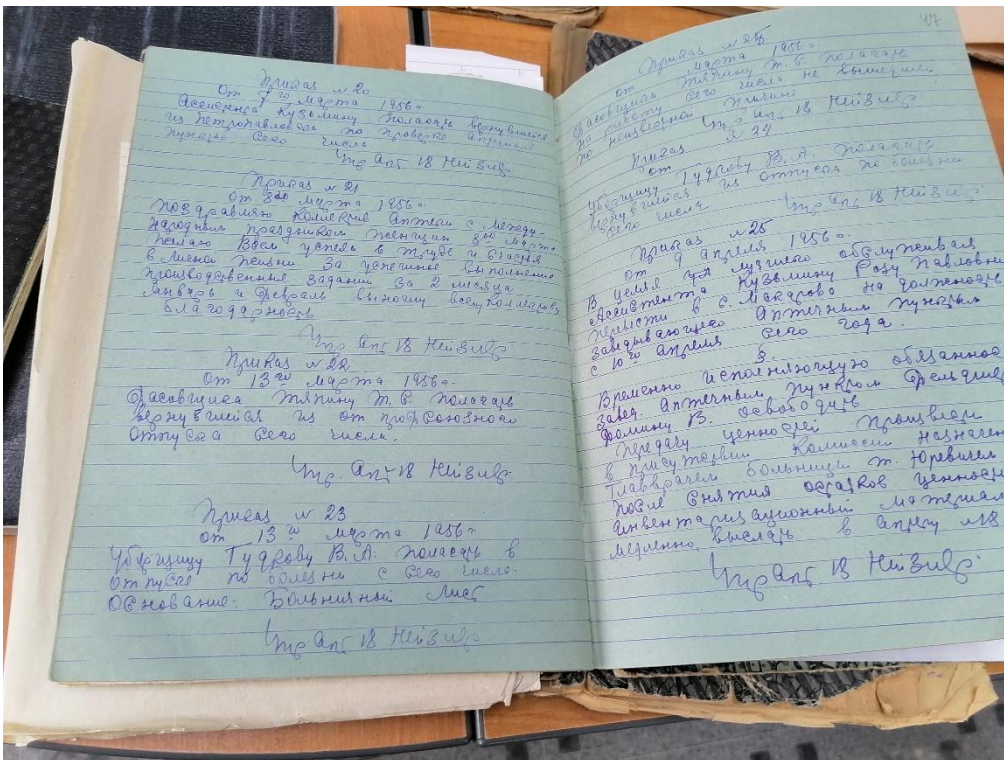 Приказ № 20
От 7го марта 1956 г.
Ассистента Кузьмину полагать вернувшейся
из Петропавловска по проверке аптечных
пунктов сего числа
Упр Апт 18 Нейзвер
Приказ № 21
От 8го марта 1956 г.
Поздравляю коллектив аптеки с между-
народным праздником женщин 8го марта
желаю Всем успеха в труде и счастья
в личной жизни. За успешное выполнение
производственных заданий за 2 месяца
январь и февраль выношу всему коллективу
благодарность
Упр Апт 18 Нейзвер
Приказ № 22
От 13го марта 1956 г.
Фасовщика Тяпину Т. С. полагать
вернувшейся из от профсоюзного
отпуска сего числа.
Упр. Апт 18 Нейзвер
Приказ № 23
от 13го марта 1956 г.
Уборщицу Гудкову В. А. полагать в
отпуске по болезни с сего числа.
Основание: Больничный Лист
Упр Апт 18 Нейзвер
Приказ №
от марта 1956 г.
Фасовщика Тяпину Т. С. полагать
на работу сего числа не вышедшей
по неизвестной причине
Упр Апт 18 Нейзвер
Приказ
№ 24
от
Уборщицу Гудкову В. А. полагать
вернувшейся из отпуска по болезни
сего числа
Упр Апт 18 Нейзвер
Приказ № 25
от 9 апреля 1956 г.
В целях лучшего обслуживая
Ассистента Кузьмину Розу Павловн
перевести в с. Макарово на должность
заведывающего аптечным пунктом
с 10го апреля сего года.
§.
Временно исполняющую обязаннос
завед. аптечным пунктом Фельдшер
Фомину В. освободить
Передачу ценностей произвести
в присутствии комиссии назначен
Главврачем больницы т. Юревичем
После снятия остатков ценносте
инвентаризационный материал
медленно выслать в аптеку №18
Упр Апт 18 Нейзвер